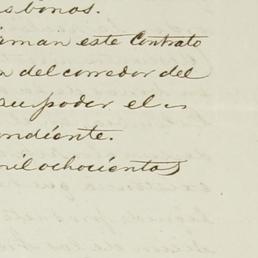 bonos.
este Contrato
del corredor del
su poder el
ndiente.
mil ochocientos